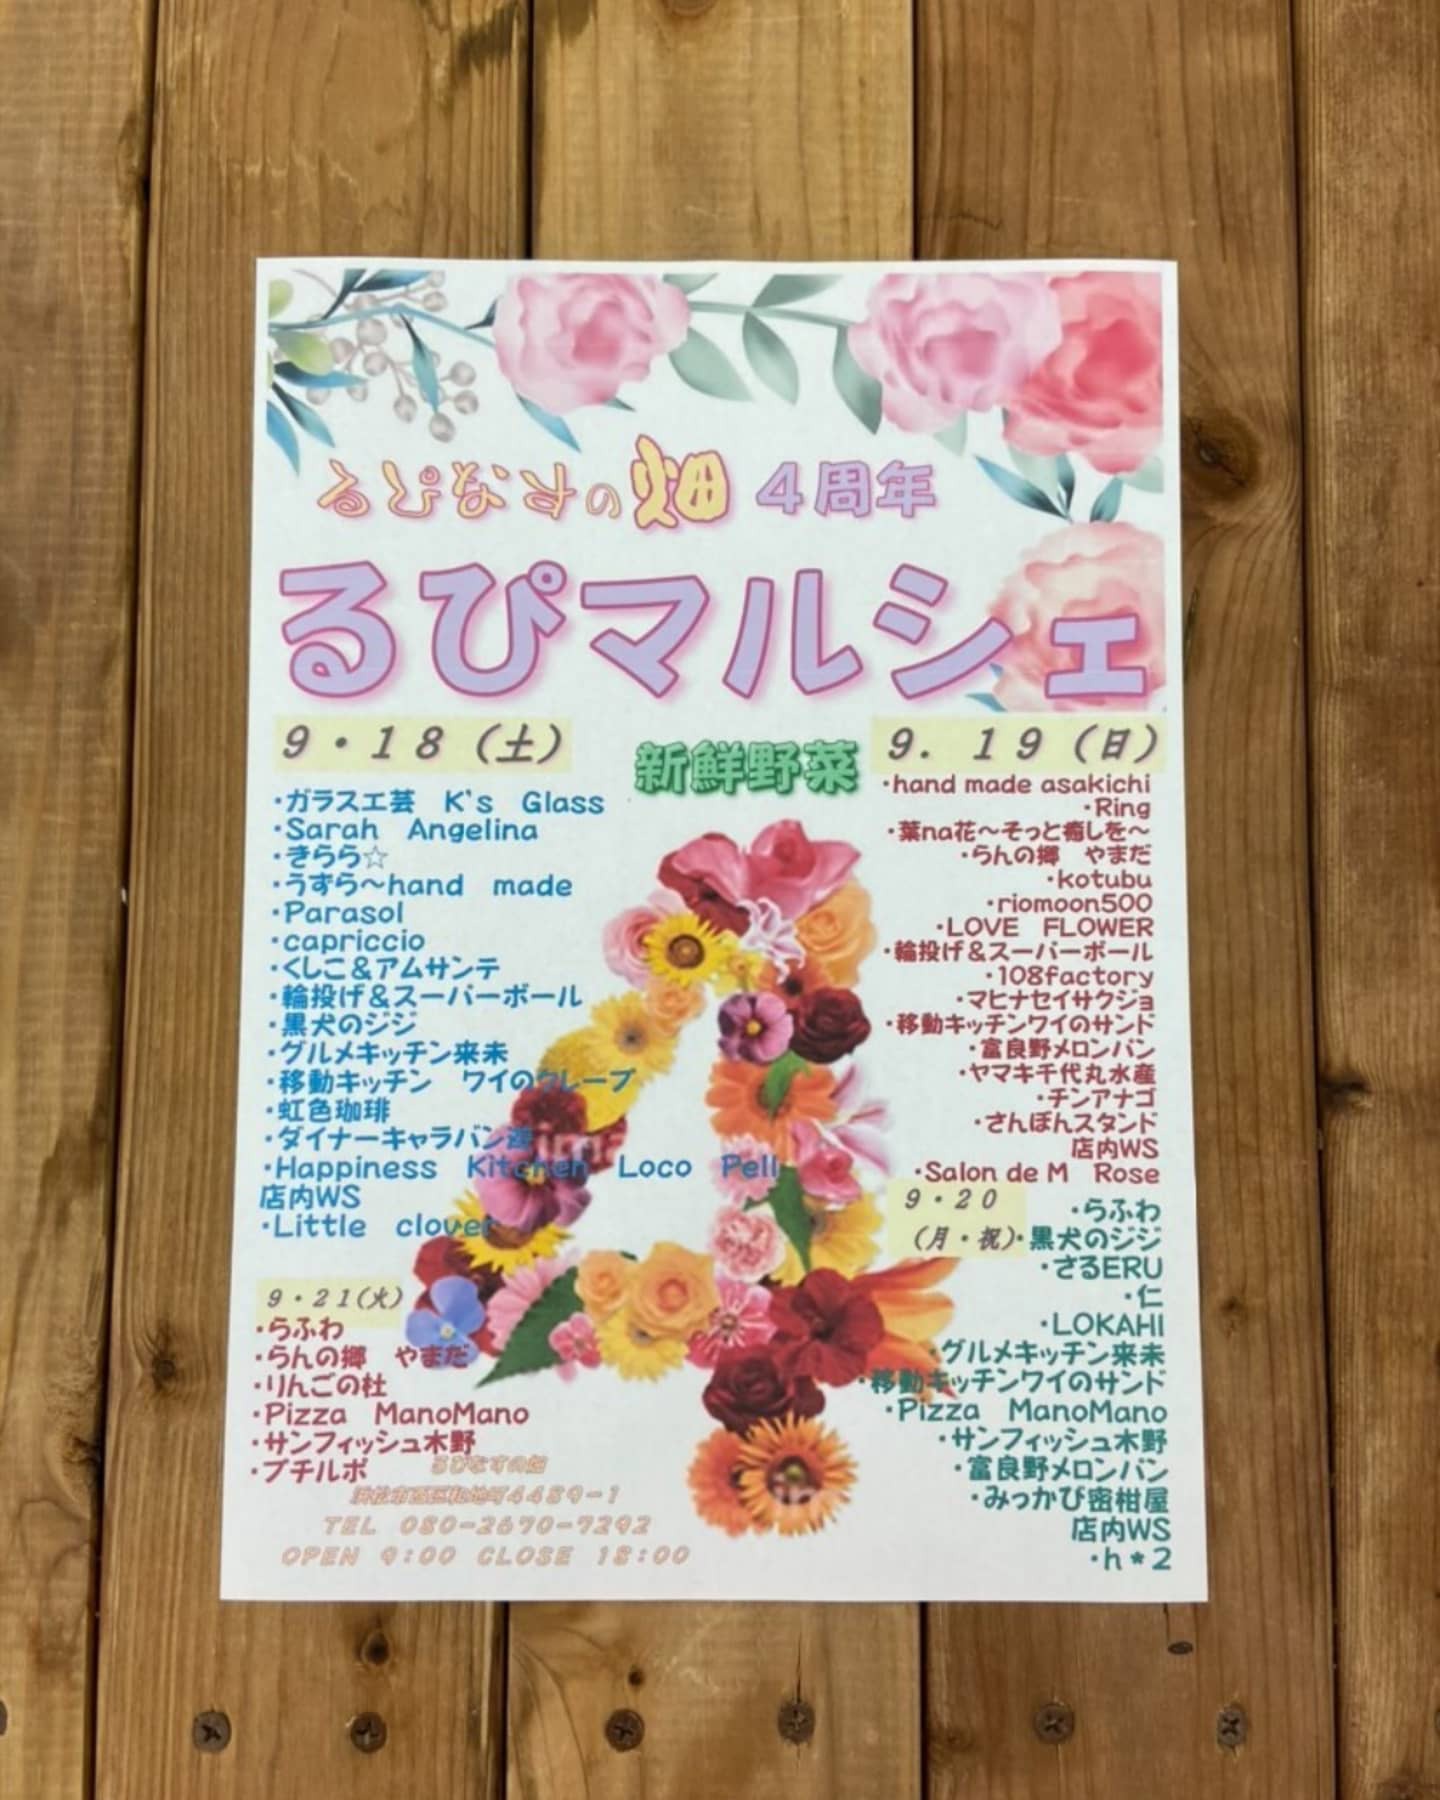 るぴなすの畑 4周年
るぴマルシェ
9・18(土)
新鮮野菜
・ガラス工芸 K's Glass
・Sarah Angelina
・きらら☆
・うずら～hand made
・Parasol
・capriccio
・くしこ&アムサンテ
・輪投げ&スーパーボール
・黒犬のジジ
・グルメキッチン来未
・移動キッチン ワイのクレープ
・虹色珈琲
・ダイナーキャラバン遊
・Happiness Kitchen Loco Pell
店内WS
・Little clover
9. 19(日)
・hand made asakichi
・Ring
・葉na花～そっと癒しを～
・らんの郷 やまだ
・kotubu
・riomoon500
・LOVE FLOWER
・輪投げ&スーパーボール
・108factory
・マヒナセイサクジョ
・移動キッチンワイのサンド
・富良野メロンパン
・ヤマキ千代丸水産
・チンアナゴ
・さんぽんスタンド
店内WS
・Salon de M Rose
9・20
(月・祝)
・らふわ
・黒犬のジジ
・さるERU
・仁
・LOKAHI
・グルメキッチン来未
・移動キッチンワイのサンド
・Pizza ManoMano
・サンフィッシュ木野
・富良野メロンパン
・みっかび蜜柑屋
店内WS
・h*2
9・21(火)
・らふわ
・らんの郷 やまだ
・りんごの杜
・Pizza ManoMano
・サンフィッシュ木野
・プチルポ
るぴなすの畑
浜松市西区和地町4489-1
TEL 080-2670-7292
OPEN 9:00 CLOSE 18:00